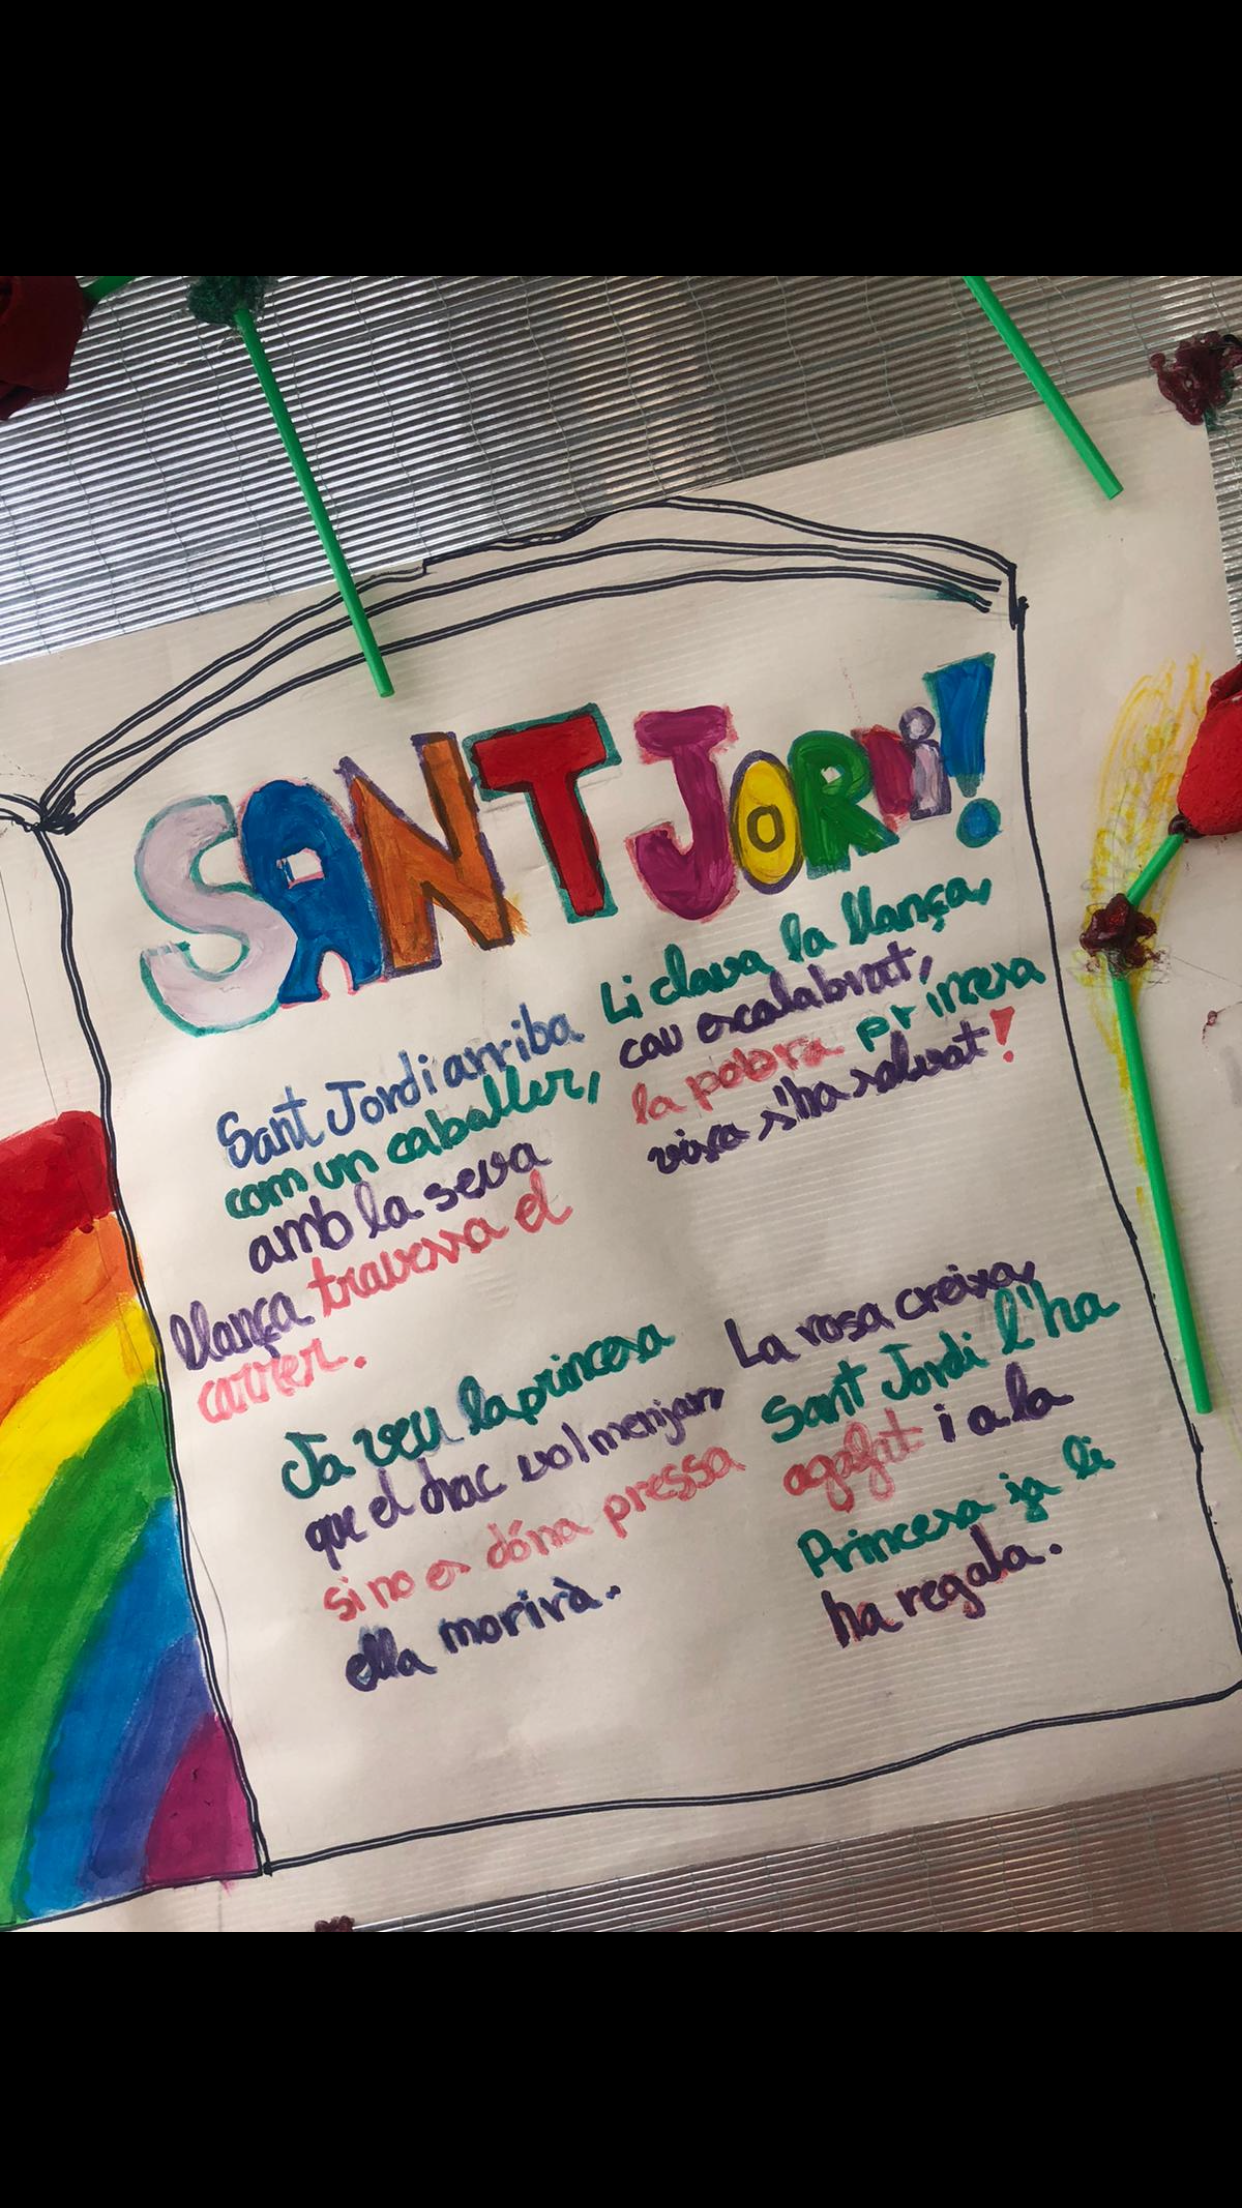 SANT JORDi!
Sant Jordi arriba
com un caballer,
amb la seva
llança travessa el
carrer.
Ja veu la princesa
que el drac vol menjar,
si no es dóna pressa
ella morirà.
Li clava la llança,
cau escalabrat,
la pobra princesa
viva s'ha salvat!
La rosa creixa,
Sant Jordi l'ha
agafat i a la
Princesa ja li
ha regala.